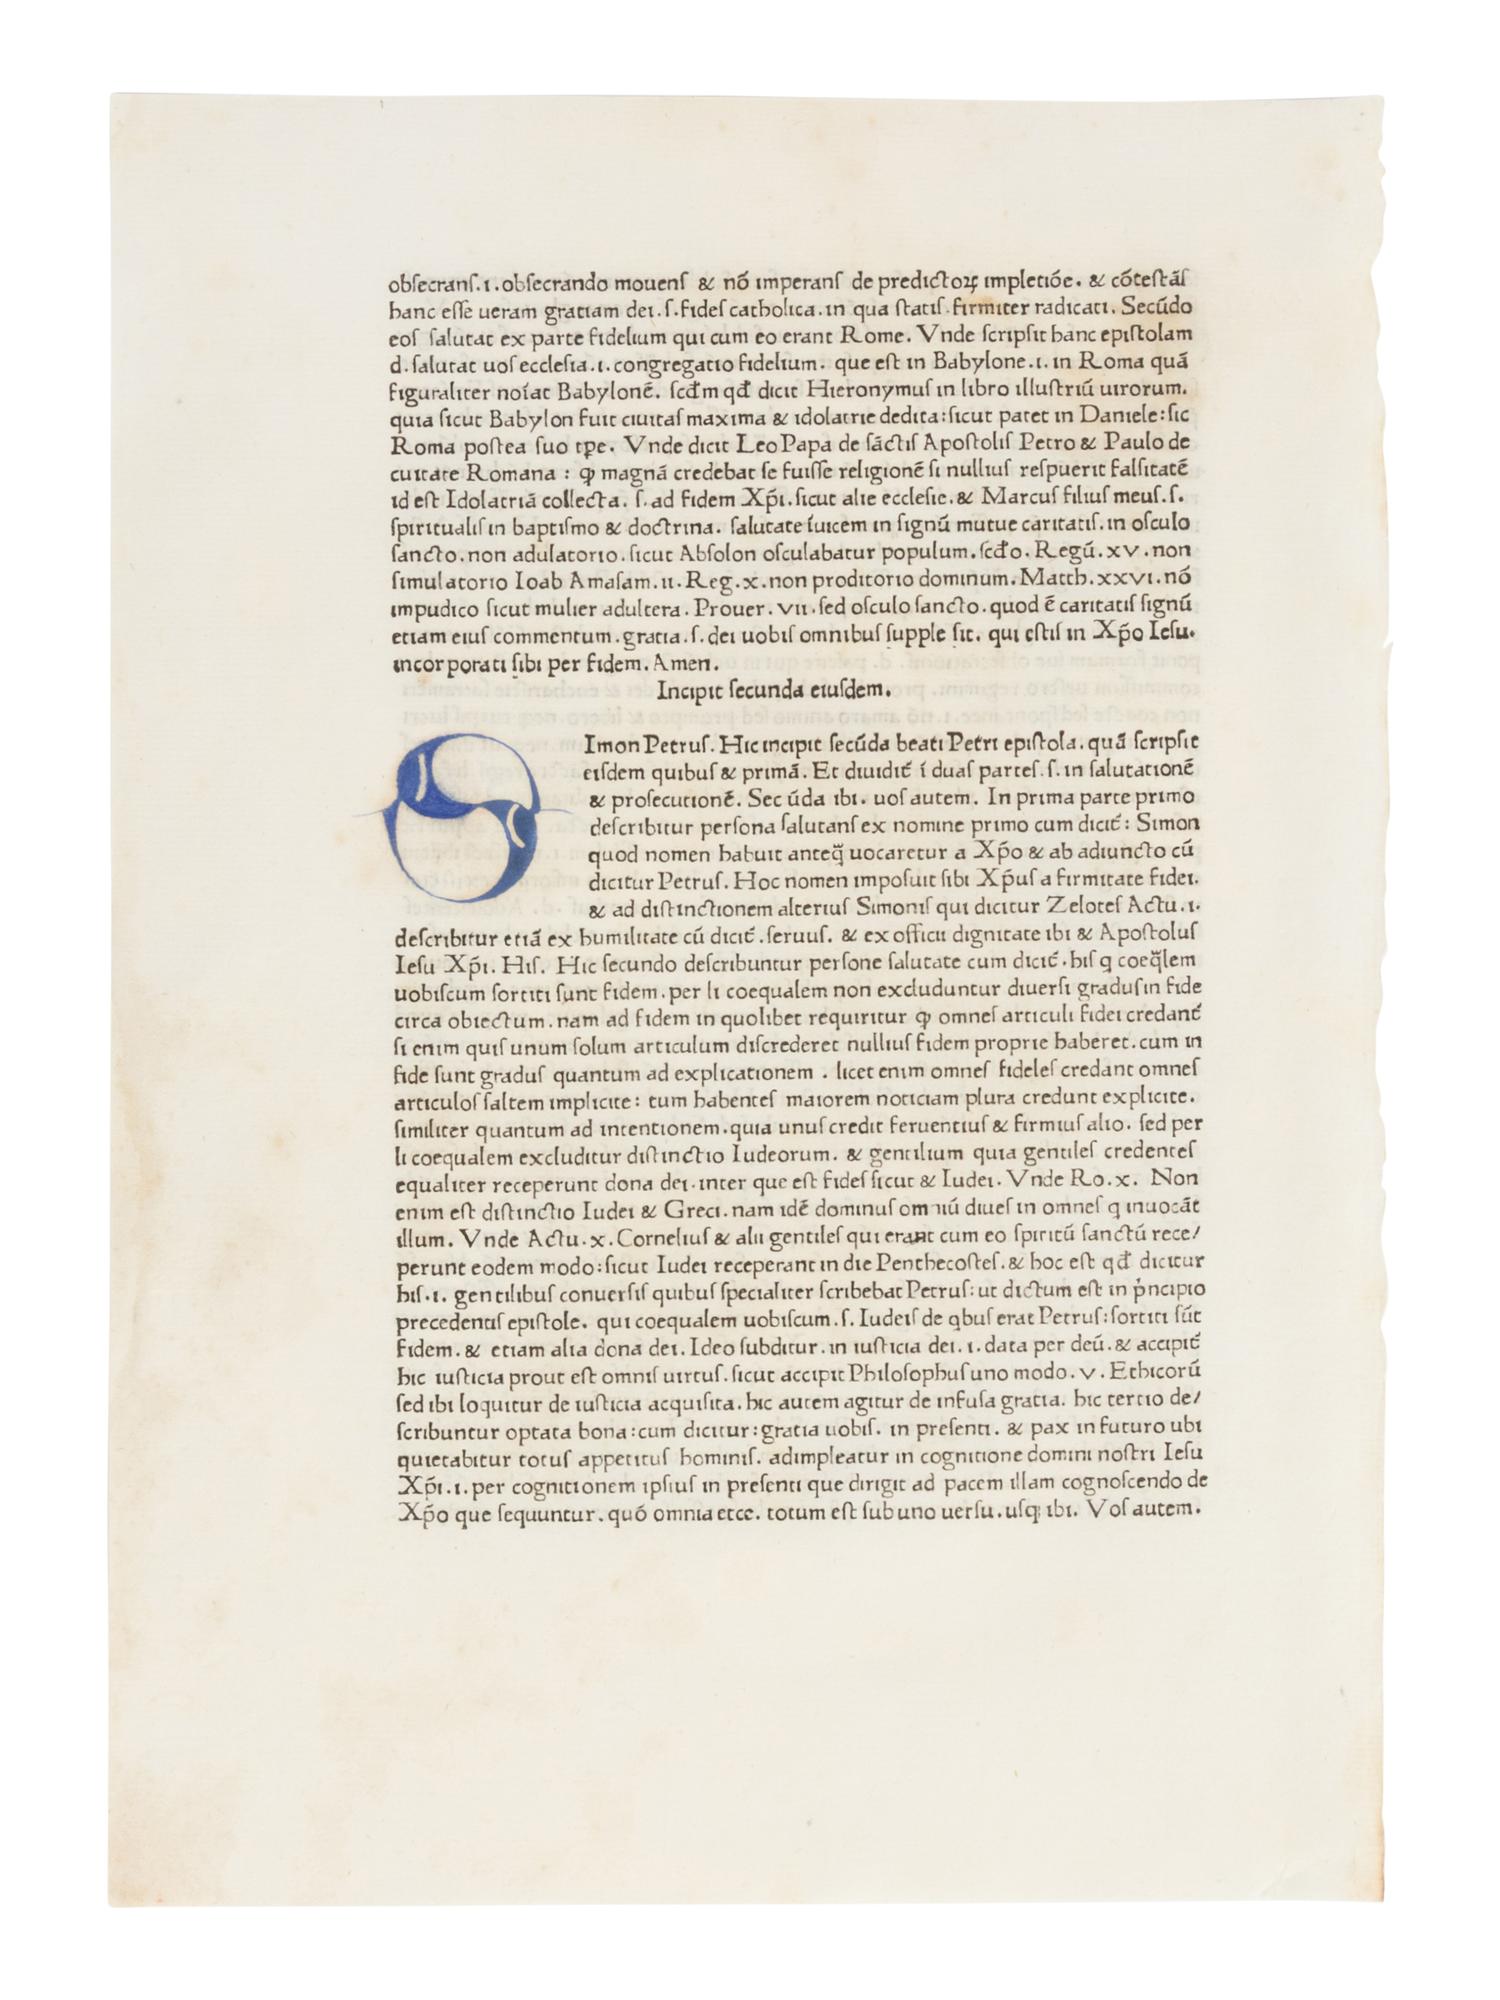 obſecranſ.ı.obſecrando mouenſ & nō ımperanſ de predictoꝝ impletiōe. & cōteſtāſ
hanc eſſe ueram gratıam deı.ſ.fıdeſ catholıca.ın qua ſtatıſ.fırmıter radıcatı. Secūdo
eoſ ſalutat ex parte fıdelıum quı cum eo erant Rome. Vnde ſcrıpſıt hanc epıſtolam
d.ſalutat uoſ eccleſıa.ı.congregatıo fıdelıum. que eſt ın Babylone.ı.ın Roma quā
fıguralıter noıāt Babylonē. ſcd̄m qd̄ dıcıt Hıeronymuſ ın lıbro ılluſtrıū uırorum.
quıa ſıcut Babylon fuıt cıuıtaſ maxıma & ıdolatrıe dedıta:ſıcut patet ın Danıele:ſıc
Roma poſtea ſuo tp̄e. Vnde dıcıt Leo Papa de ſāctıſ Apoſtolıſ Petro & Paulo de
cuıtate Romana : ꝙ magnā credebat ſe fuıſſe relıgıonē ſı nullıuſ reſpuerıt falſıtatē
ıd eſt Idolatrıā collecta. ſ.ad fıdem Xp̄ı.ſıcut alıe eccleſıe.& Marcuſ fılıuſ meuſ.ſ.
ſpırıtualıſ ın baptıſmo & doctrına. ſalutate ı̄uıcem ın ſıgnū mutue carıtatıſ.ın oſculo
ſancto.non adulatorıo.ſıcut Abſolon oſculabatur populum.ſcd̄o.Regū.xv.non
ſımulatorıo Ioab Amaſam.ıı.Reg.x.non prodıtorıo domınum.Matth.xxvı.nō
ımpudıco ſıcut mulıer adultera.Prouer.vıı.ſed oſculo ſancto.quod ē carıtatıſ ſıgnū
etıam eıuſ commentum.gratıa.ſ.deı uobıſ omnıbuſ ſupple ſıt. quı eſtıſ ın Xp̄o Ieſu.
ıncorporatı ſıbı per fıdem.Amen.
Incıpıt ſecunda eıuſdem.
S Imon Petruſ. Hıc ıncıpıt ſecūda beatı Petrı epıſtola.quā ſcrıpſıt
eıſdem quıbuſ & prımā. Et dıuıdıt̄ ı̄ duaſ parteſ.ſ.ın ſalutatıonē
& proſecutıonē. Secūda ıbı. uoſ autem. In prıma parte prımo
deſcrıbıtur perſona ſalutanſ ex nomıne prımo cum dıcıt̄: Sımon
quod nomen habuıt anteq̄ uocaretur a Xp̄o & ab adıuncto cū
dıcıtur Petruſ. Hoc nomen ımpoſuıt ſıbı Xp̄uſ a fırmıtate fıdeı.
& ad dıſtınctıonem alterıuſ Sımonıſ quı dıcıtur Zeloteſ Actu.ı.
deſcrıbıtur etıā ex humılıtate cū dıcıt̄.ſeruuſ. & ex offıcıı dıgnıtate ıbı & Apoſtoluſ
Ieſu Xp̄ı. Hıſ. Hıc ſecundo deſcrıbuntur perſone ſalutate cum dıcıt̄.hıſ q coeq̄lem
uobıſcum ſortıtı ſunt fıdem.per lı coequalem non excluduntur dıuerſı graduſ ın fıde
cırca obıectum.nam ad fıdem ın quolıbet requırıtur ꝙ omneſ artıculı fıdeı credant̄
ſı enım quıſ unum ſolum artıculum dıſcrederet nullıuſ fıdem proprıe haberet.cum ın
fıde ſunt graduſ quantum ad explıcatıonem . lıcet enım omneſ fıdeleſ credant omneſ
artıculoſ ſaltem ımplıcıte: tum habenteſ maıorem notıcıam plura credunt explıcıte.
ſımılıter quantum ad ıntentıonem.quıa unuſ credıt feruentıuſ & fırmıuſ alıo. ſed per
lı coequalem excludıtur dıſtınctıo Iudeorum. & gentılıum quıa gentıleſ credenteſ
equalıter receperunt dona deı.ınter que eſt fıdeſ ſıcut & Iudeı. Vnde Ro.x. Non
enım eſt dıſtınctıo Iudeı & Grecı.nam ıdē domınuſ omnıū dıueſ ın omneſ q ınuocāt
ıllum. Vnde Actu.x.Cornelıuſ & alıı gentıleſ quı erant cum eo ſpırıtū ſanctū rece/
perunt eodem modo:ſıcut Iudeı receperant ın dıe Penthecoſteſ.& hoc eſt qd̄ dıcıtur
hıſ.ı. gentılıbuſ conuerſıſ quıbuſ ſpecıalıter ſcrıbebat Petruſ:ut dıctum eſt ın p̄ncıpıo
precedentıſ epıſtole. quı coequalem uobıſcum.ſ.Iudeıſ de qbuſ erat Petruſ:ſortıtı ſūt
fıdem.& etıam alıa dona deı.Ideo ſubdıtur.ın ıuſtıcıa deı.ı.data per deū.& accıpıt̄
hıc ıuſtıcıa prout eſt omnıſ uırtuſ.ſıcut accıpıt Phıloſophuſ uno modo.v.Ethıcorū
ſed ıbı loquıtur de ıuſtıcıa acquıſıta.hıc autem agıtur de ınfuſa gratıa. hıc tertıo de/
ſcrıbuntur optata bona:cum dıcıtur:gratıa uobıſ. ın preſentı. & pax ın futuro ubı
quıetabıtur totuſ appetıtuſ homınıſ. adımpleatur ın cognıtıone domını noſtrı Ieſu
Xp̄ı.ı.per cognıtıonem ıpſıuſ ın preſentı que dırıgıt ad pacem ıllam cognoſcendo de
Xp̄o que ſequuntur.quō omnıa etcc. totum eſt ſub uno uerſu.uſqꝫ ıbı. Voſ autem.